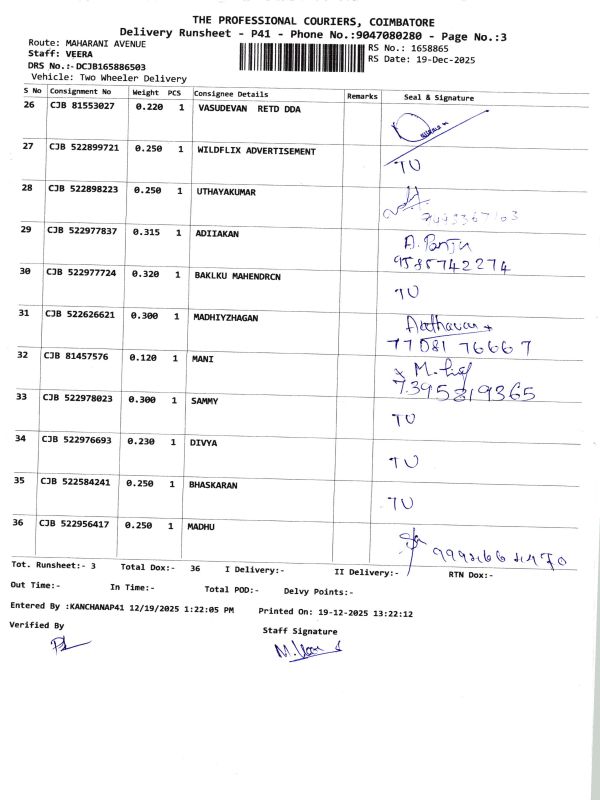 THE PROFESSIONAL COURIERS, COIMBATORE
Delivery Runsheet - P41 - Phone No.:9047080280 - Page No.:3
Route: MAHARANI AVENUE
RS No.: 1658865
Staff: VEERA
RS Date: 19-Dec-2025
DRS No.:-DCJB165886503
Vehicle: Two Wheeler Delivery
S No Consignment No Weight PCS Consignee Details Remarks Seal & Signature
26 CJB 81553027 0.220 1 VASUDEVAN RETD DDA
27 CJB 522899721 0.250 1 WILDFLIX ADVERTISEMENT TU
28 CJB 522898223 0.250 1 UTHAYAKUMAR
29 CJB 522977837 0.315 1 ADIIAKAN
9585742274
30 CJB 522977724 0.320 1 BAKLKU MAHENDRCN TU
31 CJB 522626621 0.300 1 MADHIYZHAGAN
77081 76667
32 CJB 81457576 0.120 1 MANI
7395819365
33 CJB 522978023 0.300 1 SAMMY TU
34 CJB 522976693 0.230 1 DIVYA TU
35 CJB 522584241 0.250 1 BHASKARAN TU
36 CJB 522956417 0.250 1 MADHU
Tot. Runsheet:- 3 Total Dox:- 36 I Delivery:- II Delivery:- RTN Dox:-
Out Time:- In Time:- Total POD:- Delvy Points:-
Entered By :KANCHANAP41 12/19/2025 1:22:05 PM Printed On: 19-12-2025 13:22:12
Verified By Staff Signature